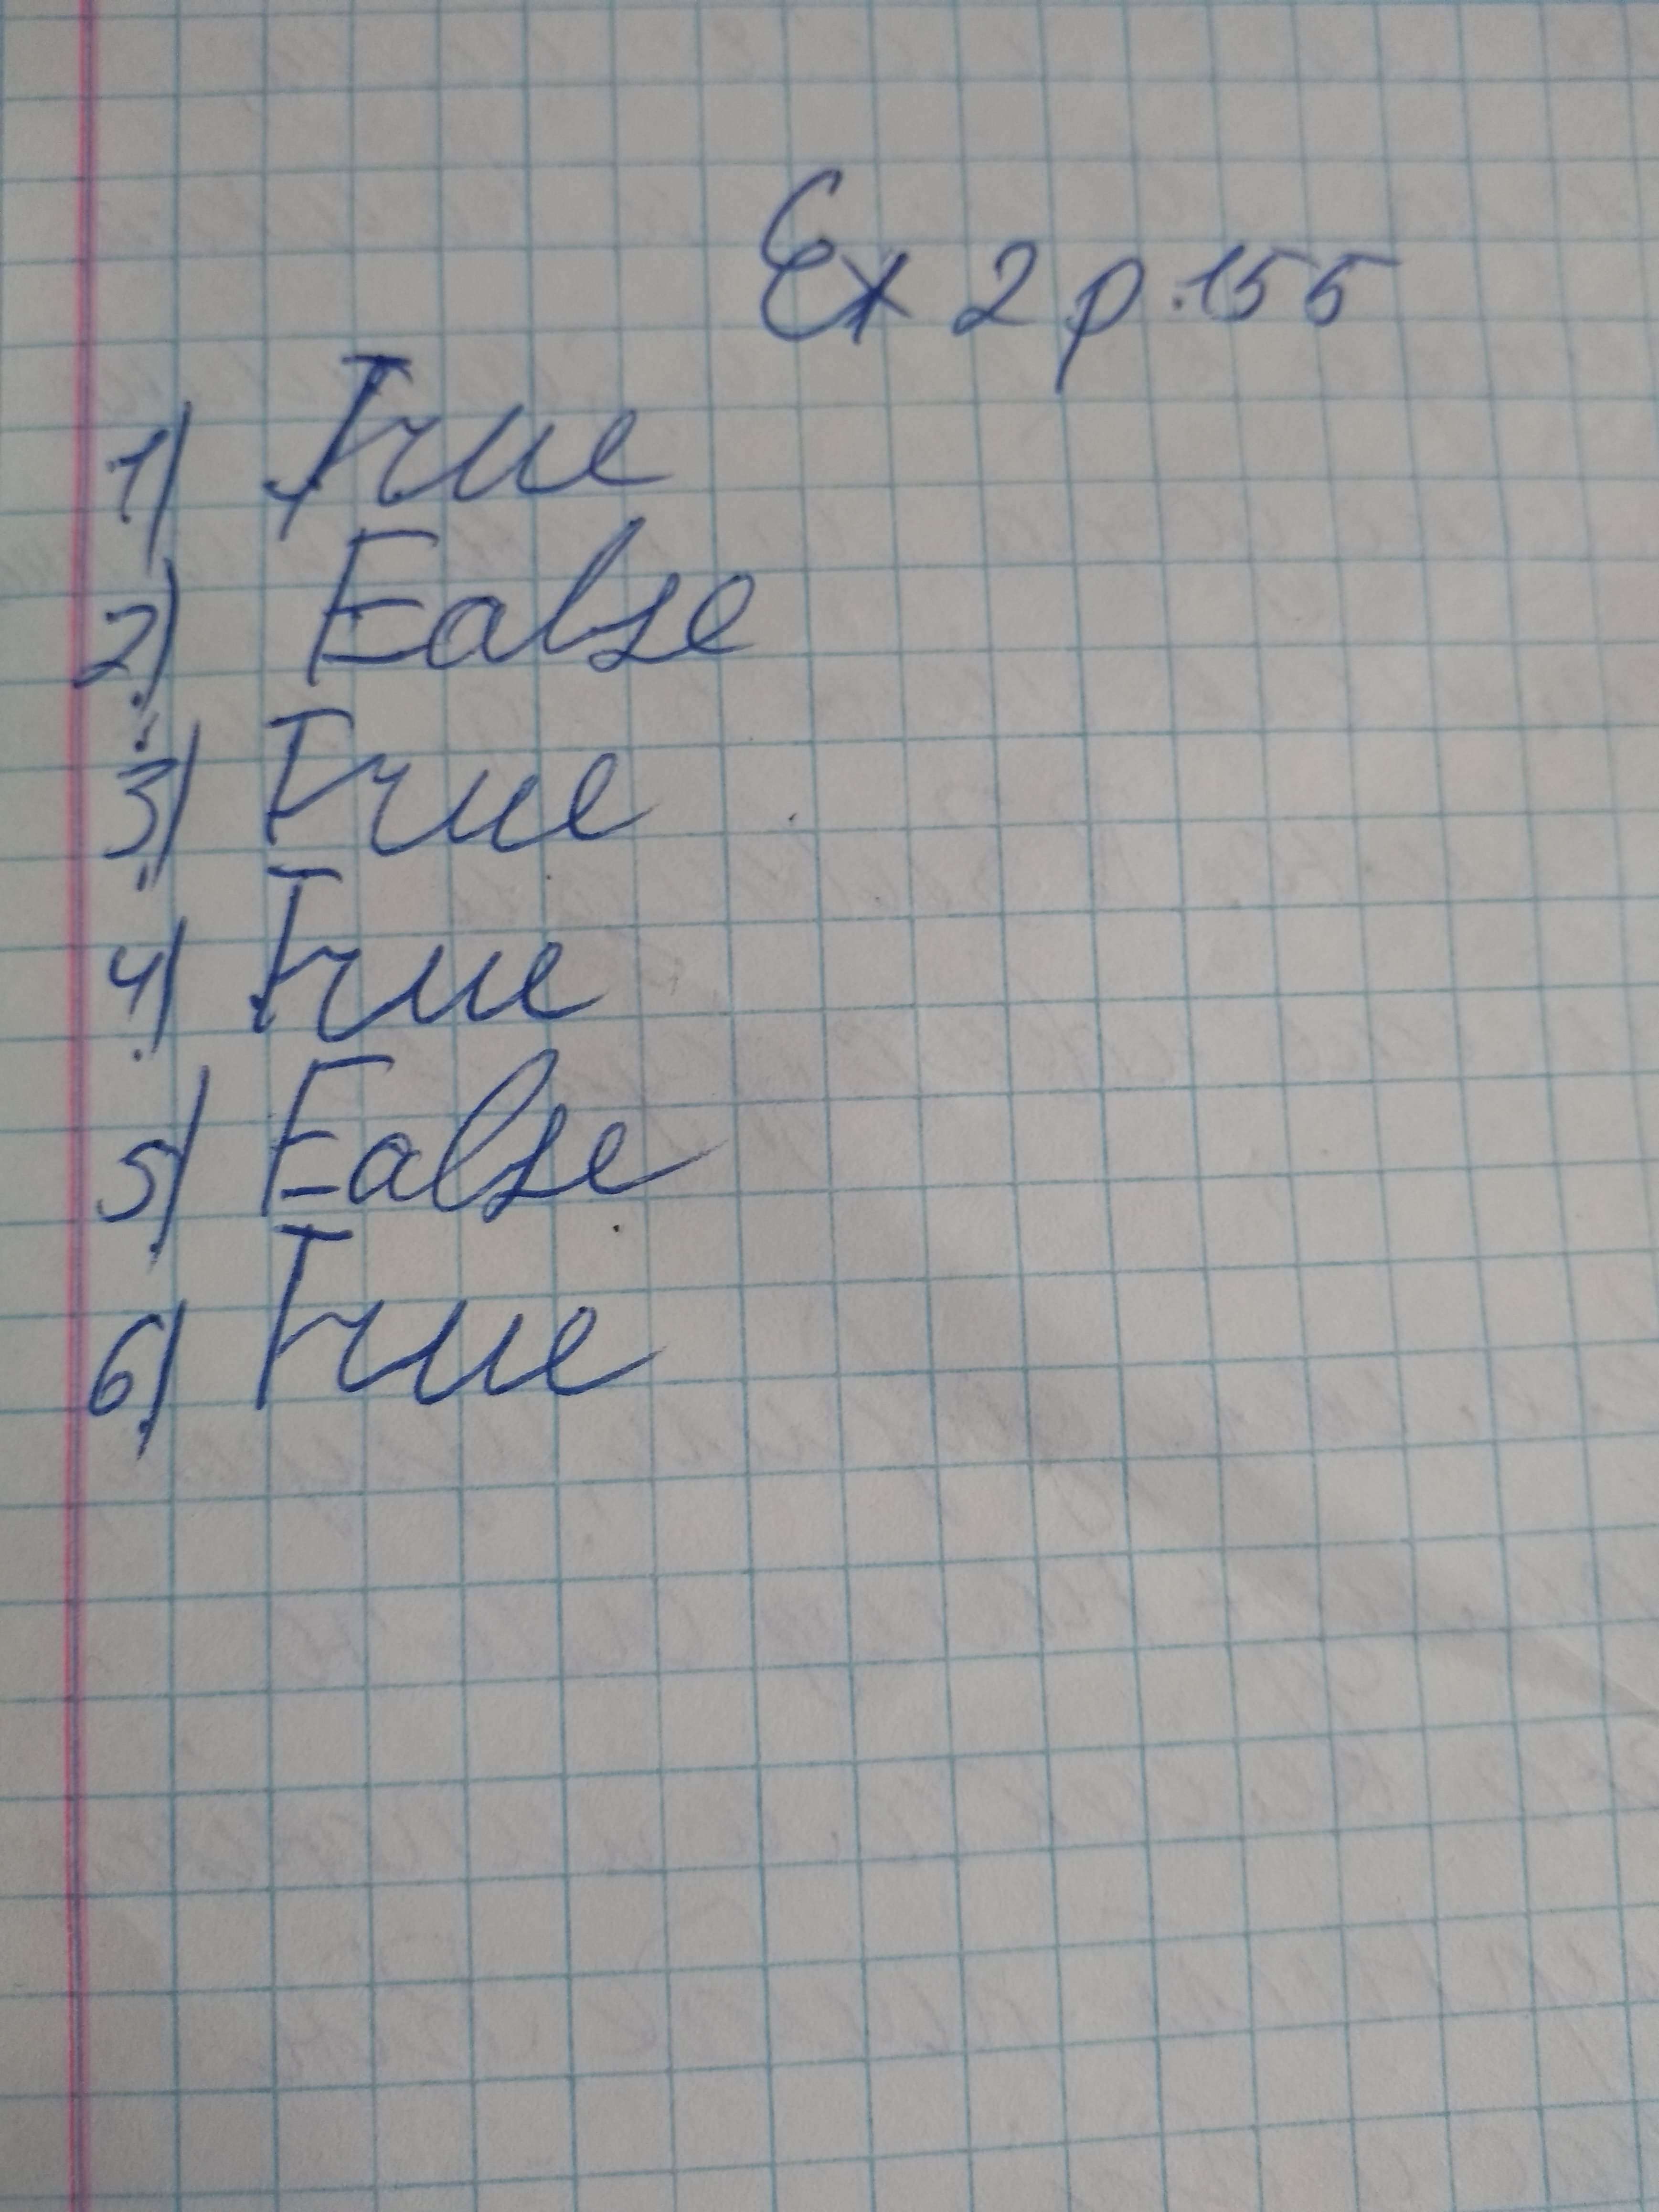 Ex 2 p.155
1) True
2) False
3) True
4) True
5) False
6) True